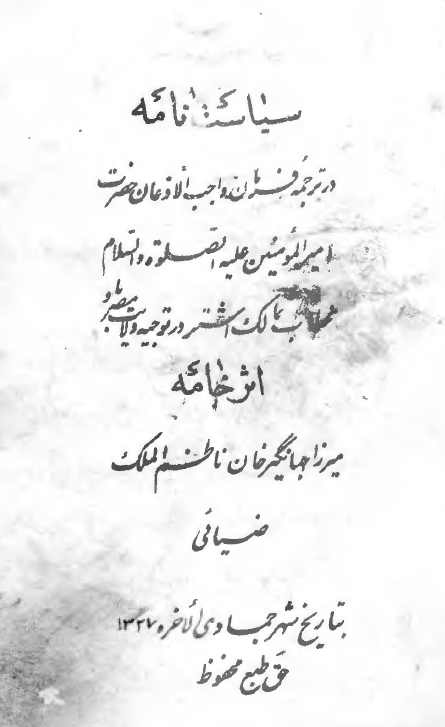 سیاست نامه
در ترجمه فرمان واجب الاذعان حضرت
امیر المؤمنین علیه الصلوة والسلام
بمالک اشتر در توجیه ولایت مصر
اثر خامه
میرزا جهانگیر خان ناظم الملک
ضیائی
بتاریخ شهر جمادی الاخره ۱۳۲۷
حق طبع محفوظ